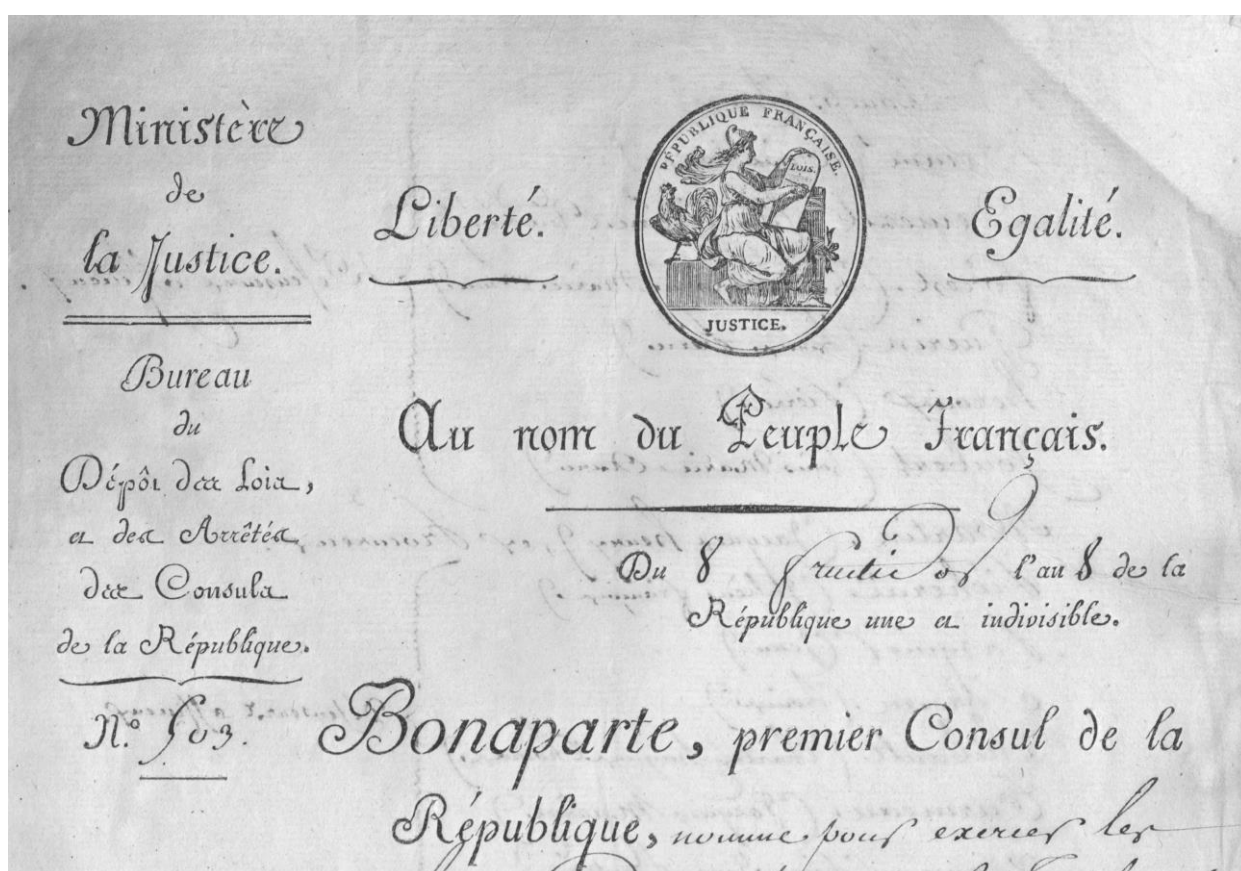 Ministère
de
la Justice.
Bureau
du
Dépôt des Loix,
et des Arrêtés
des Consuls
de la République.
N.º 503.
Liberté.
RÉPUBLIQUE FRANÇAISE.
LOIS.
JUSTICE.
Egalité.
Au nom du Peuple Français.
Du 8 fructidor l'an 8 de la
République une et indivisible.
Bonaparte, premier Consul de la
République, nomme pour exercer les